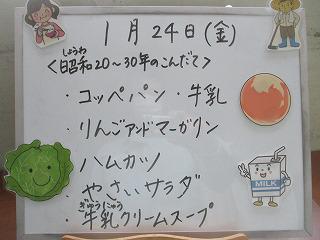 1月24日(金)
しょうわ
<昭和20～30年のこんだて>
・コッペパン・牛乳
・りんごアンドマーガリン
・ハムカツ
・やさいサラダ
ぎゅうにゅう
・牛乳クリームスープ
MILK